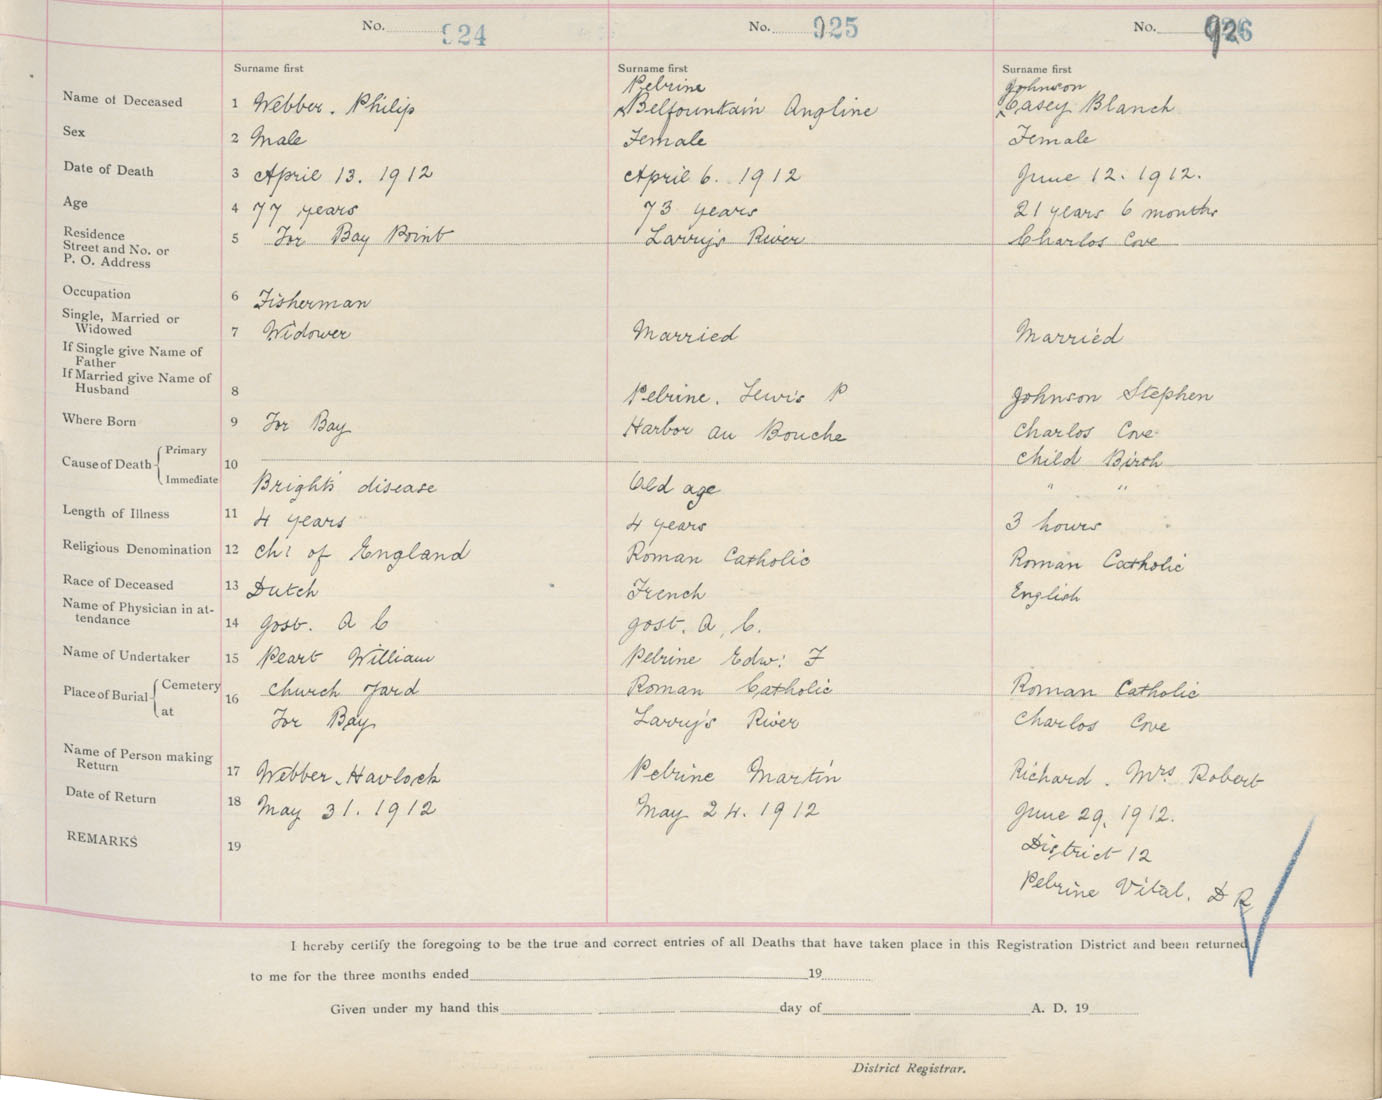 No. 924 No. 925 No. 926
Surname first Surname first Surname first
Pelrine Johnson
Name of Deceased 1 Webber. Philip Belfountain Angline Casey Blanch
Sex 2 Male Female Female
Date of Death 3 April 13. 1912 April 6. 1912 June 12. 1912.
Age 4 77 years 73 years 21 years 6 months
Residence Street and No. or P. O. Address 5 Tor Bay Point Larry's River Charlos Cove
Occupation 6 Fisherman
Single, Married or Widowed 7 Widower Married Married
If Single give Name of Father
If Married give Name of Husband 8 Pelrine. Lewis P Johnson Stephen
Where Born 9 Tor Bay Harbor au Bouche Charlos Cove
Cause of Death Primary 10 Child Birth
Immediate Bright's disease Old age " "
Length of Illness 11 4 years 4 years 3 hours
Religious Denomination 12 Ch: of England Roman Catholic Roman Catholic
Race of Deceased 13 Dutch French English
Name of Physician in attendance 14 Jost. A C Jost. A, C.
Name of Undertaker 15 Peart William Pelrine Edw: F
Place of Burial Cemetery 16 Church Yard Roman Catholic Roman Catholic
at Tor Bay Larry's River Charlos Cove
Name of Person making Return 17 Webber. Havlock Pelrine Martin Richard. Mrs Robert
Date of Return 18 May 31. 1912 May 24. 1912 June 29. 1912.
REMARKS 19 District 12
Pelrine Vital. D R
I hereby certify the foregoing to be the true and correct entries of all Deaths that have taken place in this Registration District and been returned
to me for the three months ended 19
Given under my hand this day of A. D. 19
District Registrar.